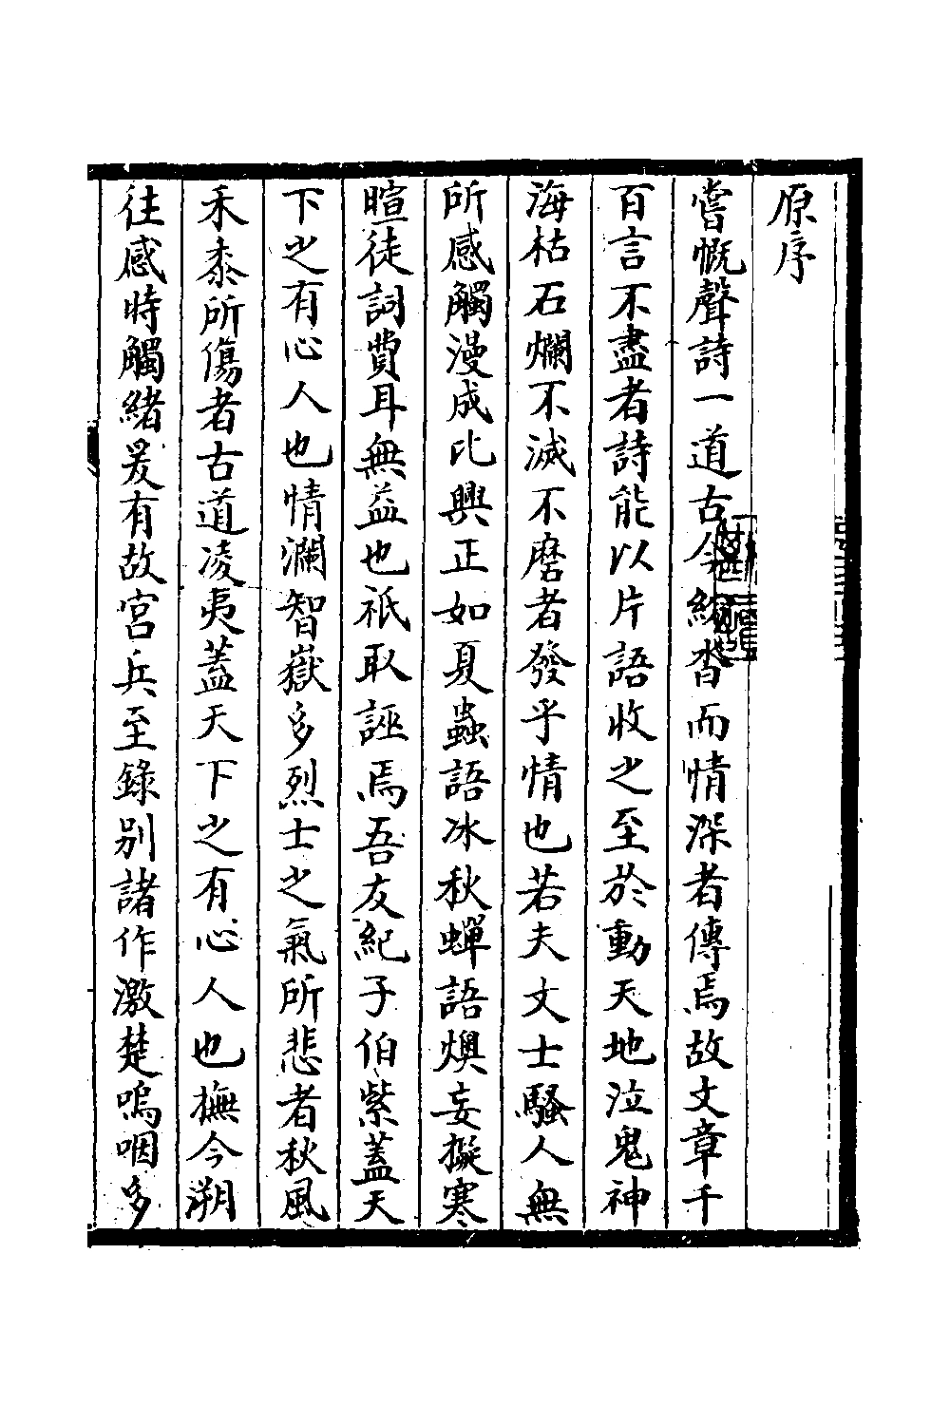 原序
嘗慨聲詩一道古今紛沓而情深者傳焉故文章千
百言不盡者詩能以片語收之至於動天地泣鬼神
海枯石爛不滅不磨者發乎情也若夫文士騷人無
所感觸漫成比興正如夏蟲語冰秋蟬語燠妄擬寒
暄徒詞費耳無益也祇取誣焉吾友紀子伯紫蓋天
下之有心人也情瀾智嶽多烈士之氣所悲者秋風
禾黍所傷者古道凌夷蓋天下之有心人也撫今溯
往感時觸緒爰有故宮兵至錄別諸作激楚嗚咽多